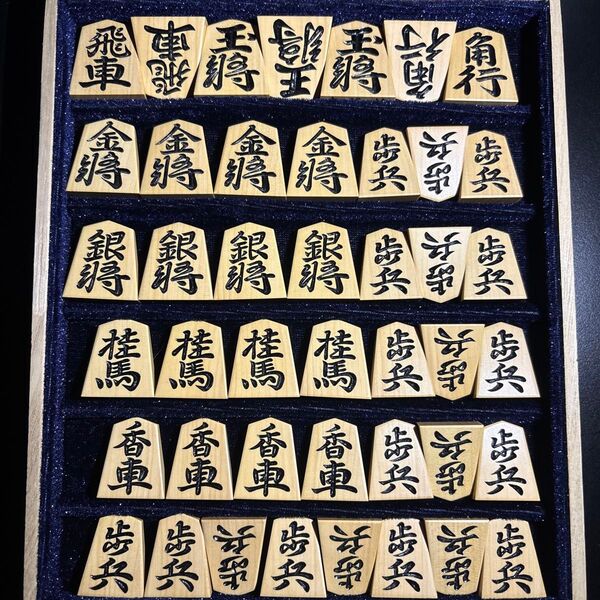 飛車 飛車 王将 玉将 王将 角行 角行
金将 金将 金将 金将 歩兵 歩兵 歩兵
銀将 銀将 銀将 銀将 歩兵 歩兵 歩兵
桂馬 桂馬 桂馬 桂馬 歩兵 歩兵 歩兵
香車 香車 香車 香車 歩兵 歩兵 歩兵
歩兵 歩兵 歩兵 歩兵 歩兵 歩兵 歩兵 歩兵